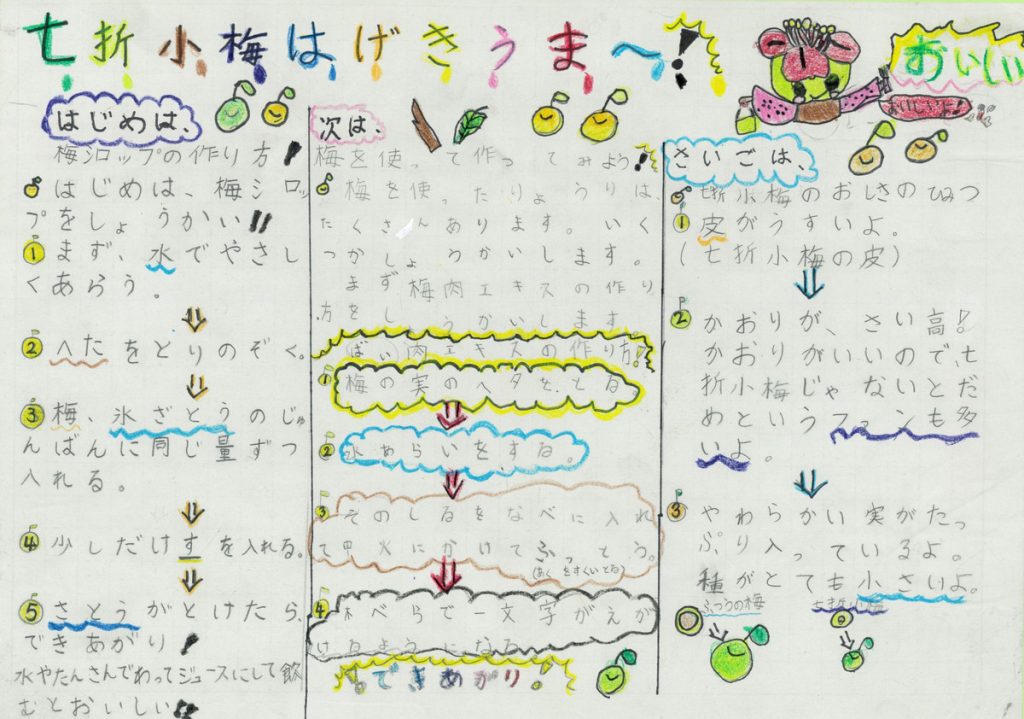 七折小梅はげきうま〜!
おいしい
はじめは、
梅シロップの作り方!
はじめは、梅シロッ
プをしょうかい!!
①まず、水でやさし
くあらう。
②へたをとりのぞく。
③梅、氷ざとうのじゅ
んばんに同じ量ずつ
入れる。
④少しだけすを入れる。
⑤さとうがとけたら、
できあがり!
水やたんさんでわってジュースにして飲
むとおいしい!!
次は、
梅を使って作ってみよう!
梅を使ったりょうりは、
たくさんあります。いく
つかしょうかいします。
まず梅肉エキスの作り
方をしょうかいします。
ばい肉エキスの作り方!
①梅の実のヘタをとる
②水あらいをする。
③そのしるをなべに入れ
て火にかけてふっとう。
(あくをすくいとる)
④木べらで一文字がえが
けるようになる
できあがり!
さいごは、
七折小梅のおしさのひみつ
①皮がうすいよ。
(七折小梅の皮)
②かおりが、さい高!
かおりがいいので、七
折小梅じゃないとだ
めというファンも多
いよ。
③やわらかい実がたっ
ぷり入っているよ。
種がとても小さいよ。
ふつうの梅
七折小梅